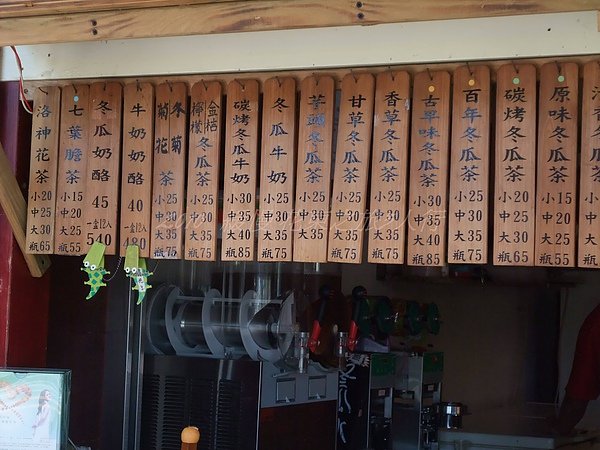 洛神花茶 小20 中25 大30 瓶65
七葉膽茶 小15 中20 大25 瓶55
冬瓜奶酪 45 一盒12入 540
牛奶奶酪 40 一盒12入 480
菊花 冬菊 茶 小25 中30 大35 瓶75
檸檬 金桔 冬瓜茶 小25 中30 大35 瓶75
碳烤冬瓜牛奶 小30 中35 大40 瓶85
冬瓜牛奶 小25 中30 大35 瓶75
芋頭冬瓜茶 小25 中30 大35 瓶75
甘草冬瓜茶 小25 中30 大35 瓶75
香草冬瓜茶 小25 中30 大35 瓶75
古早味冬瓜茶 小30 中35 大40 瓶85
百年冬瓜茶 小25 中30 大35 瓶75
碳冬瓜茶 小20 中25 大30 瓶65
原味冬瓜茶 小15 中20 大25 瓶55